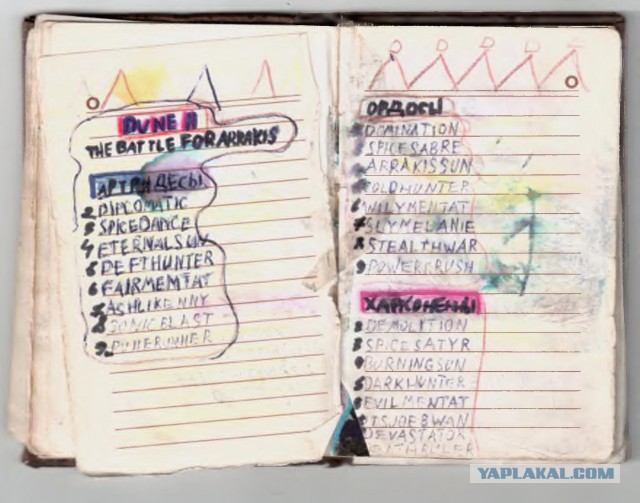 DUNE II
THE BATTLE FOR ARRAKIS
АРТРИДЕСЫ
2 DIPLOMATIC
3 SPICEDANCE
4 ETERNALSUN
5 DEFTHUNTER
6 FAIRMENTAT
7 ASHLIKENNY
8 SONICBLAST
9. DUNERUNNER
ОРДОСЫ
DOMINATION
SPICESABRE
ARRAKISSUN
COLDHUNTER
6 WILYMENTAT
7 SLYMELANIE
8 STEALTHWAR
9 POWERCRUSH
ХАРКОНЕНЫ
2 DEMOLITION
3 SPICESATYR
4 BURNINGSUN
5 DARKHUNTER
6 EVILMENTAT
ITSJOEBWAN
DEVASTATOR
YAPLAKAL.COM